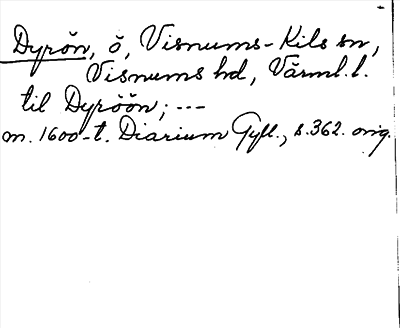 Dyrön, ö, Visnums-Kils sn,
Visnums hd, Värml.l.
til Dyröön; ---
m. 1600-t. Diarium Gyll., s.362. orig.